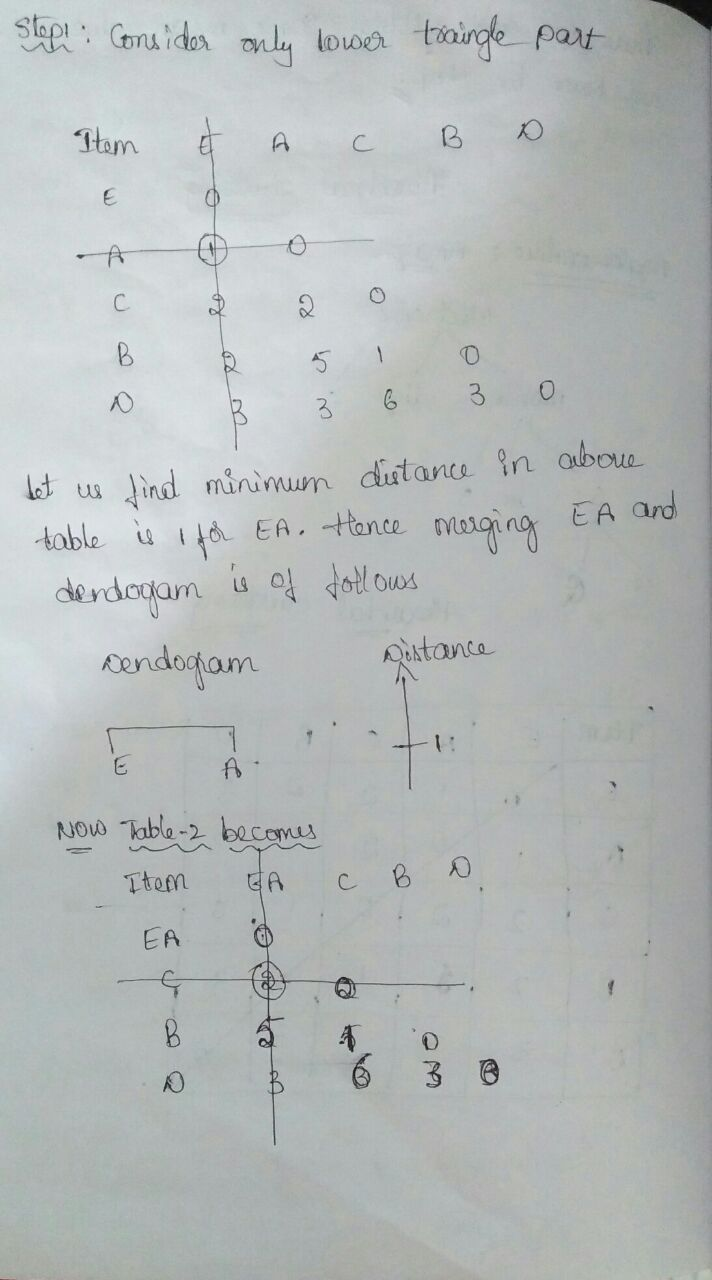 Step1: Consider only lower traingle part
Item E A C B D
E 0
A 1 0
C 2 2 0
B 2 5 1 0
D 3 3 6 3 0
Let us find minimum distance in above
table is 1 for EA. Hence merging EA and
dendogam is of follows
Dendogram Distance
1
E A
Now Table-2 becomes
Item EA C B D
EA 0
C 2
B 0
D 3 6 3